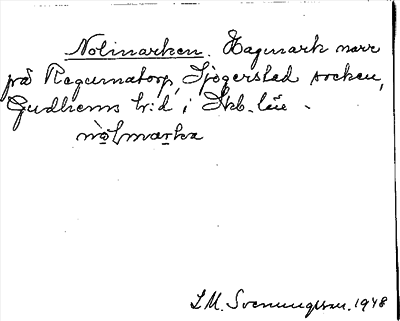 Nolmarken. Hagmark norr
på Ragunatorp, Sjogerstad socken,
Gudhems h:d i Skb. län.
S.M. Svenungsson. 1948